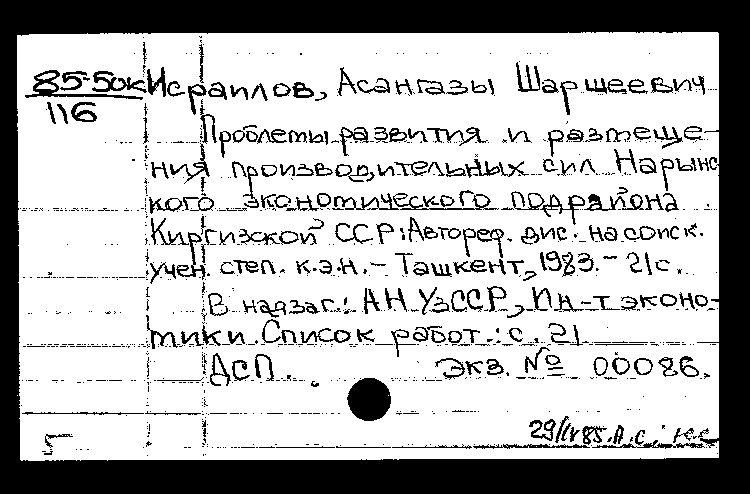 85-50к Исраилов, Асангазы Шаршеевич
116
Проблемы развития и размеще-
ния производительных сил Нарынс
кого экономического подрайона
Киргизской ССР: Автореф. дис. на соиск.
учен. степ. к.э.н. - Ташкент, 1983. - 21с.
В надзаг.: АН УзССР, Ин-т эконо-
мики. Список работ.: с. 21
ДСП. Экз. № 00086.
5 29/IV85.